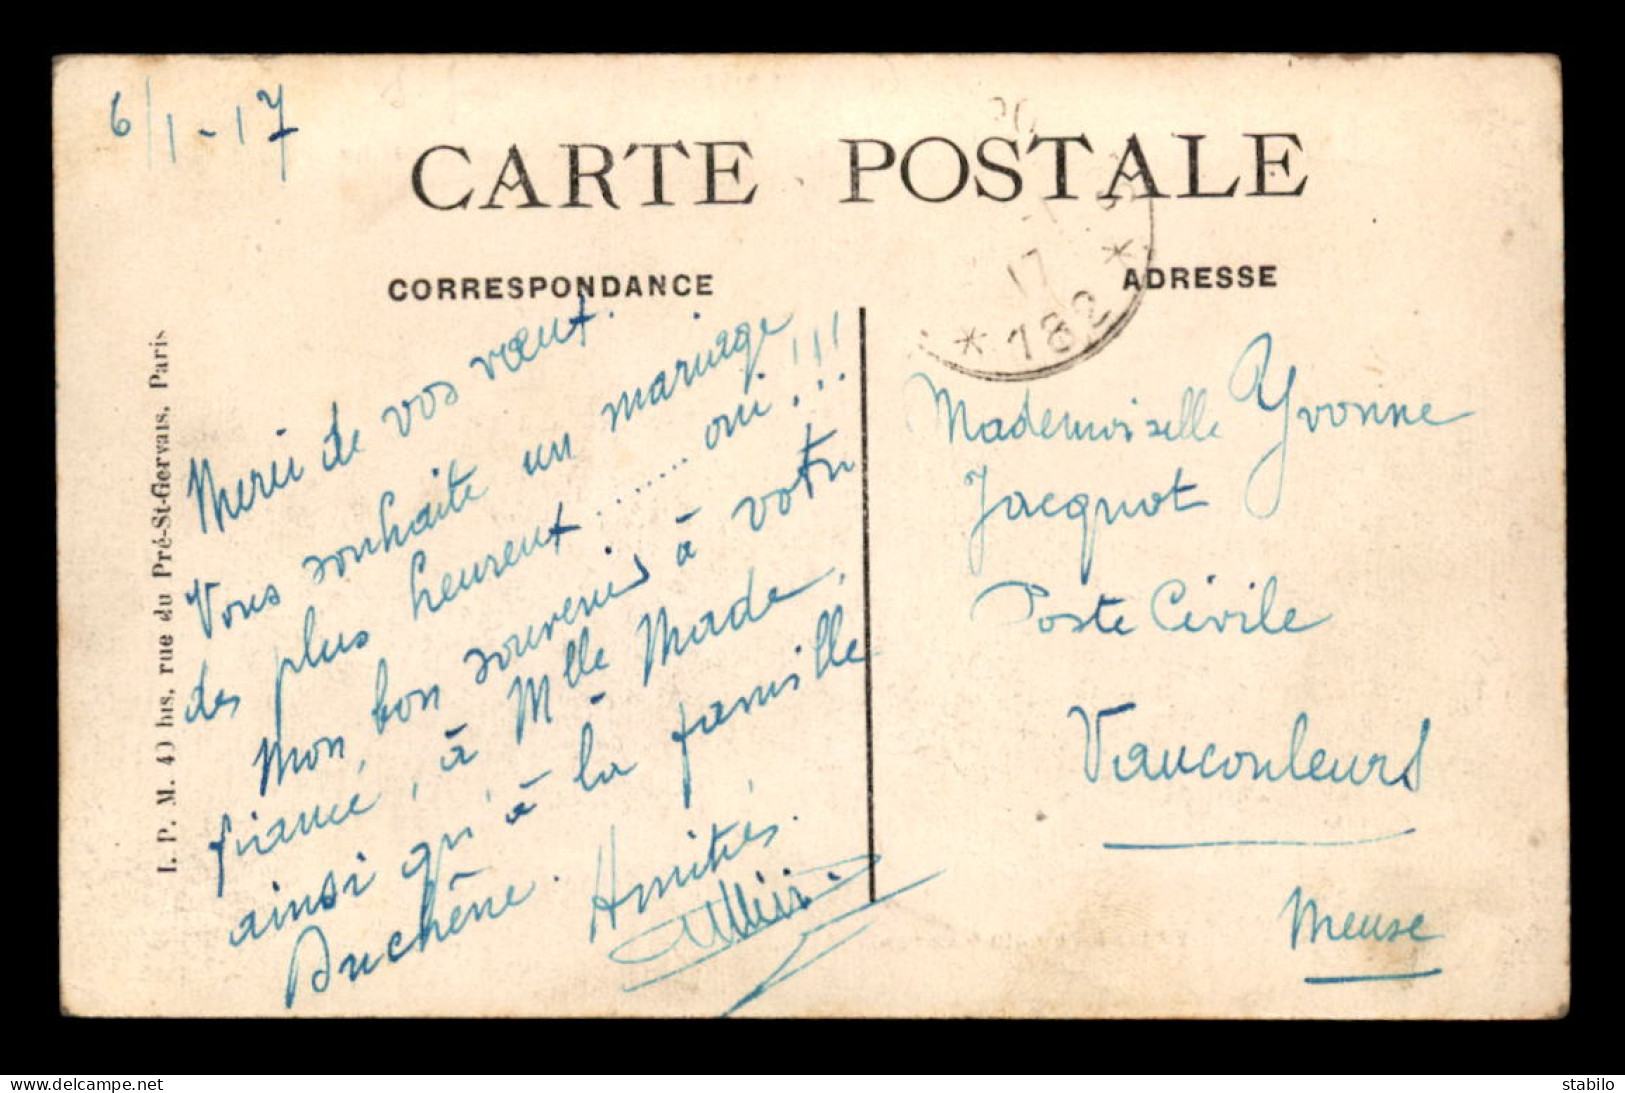 6/1-17
CARTE POSTALE
CORRESPONDANCE
ADRESSE
17
* 182 *
I. P. M. 40 bis, rue du Pré-St-Gervais, Paris
Merci de vos vœux.
Vous souhaite un mariage
des plus heureux ......... oui !!!!
mon bon souvenir à votre
fiancé, à Mlle Made,
ainsi qu'à la famille
Duchêne. Amitiés.
Mademoiselle Yvonne
Jacquot
Poste Civile
Vaucouleurs
Meuse
www.delcampe.net
stabilo